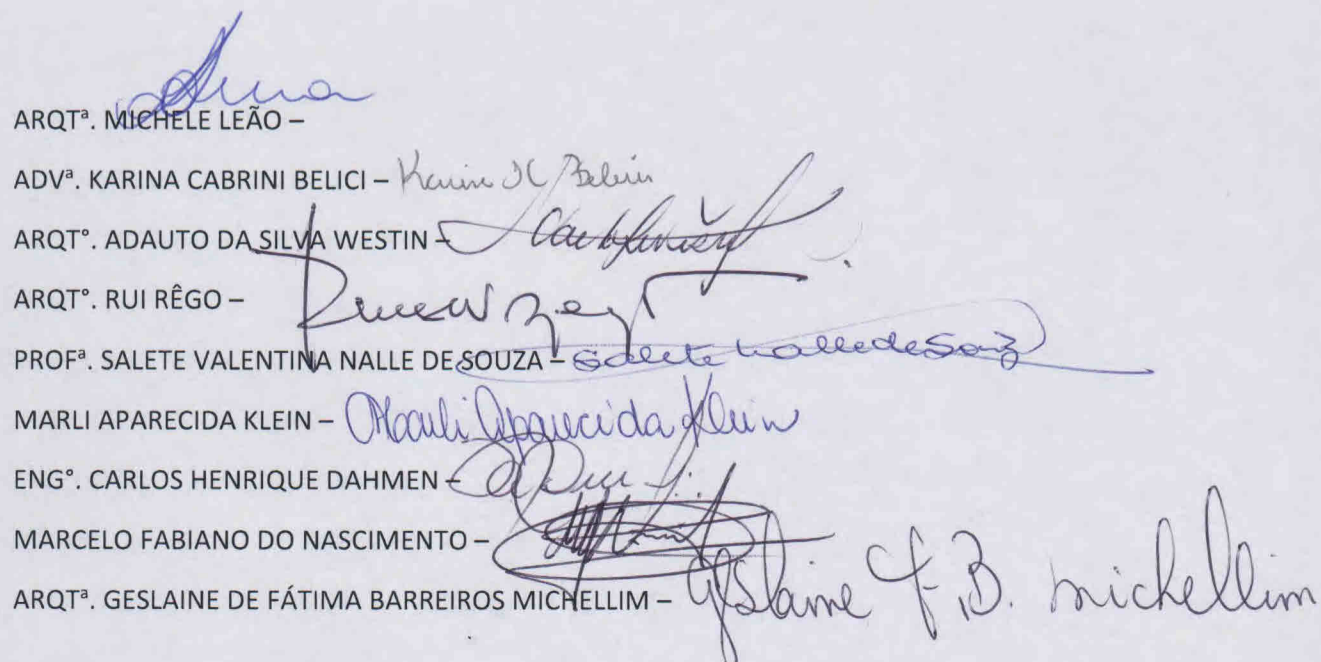 ARQTª. MICHELE LEÃO –
ADVª. KARINA CABRINI BELICI –
ARQT°. ADAUTO DA SILVA WESTIN –
ARQT°. RUI RÊGO –
PROFª. SALETE VALENTINA NALLE DE SOUZA – Salete Nalle de Souza
MARLI APARECIDA KLEIN – Marli Aparecida Klein
ENG°. CARLOS HENRIQUE DAHMEN –
MARCELO FABIANO DO NASCIMENTO –
ARQTª. GESLAINE DE FÁTIMA BARREIROS MICHELLIM – Geslaine F. B. Michellim